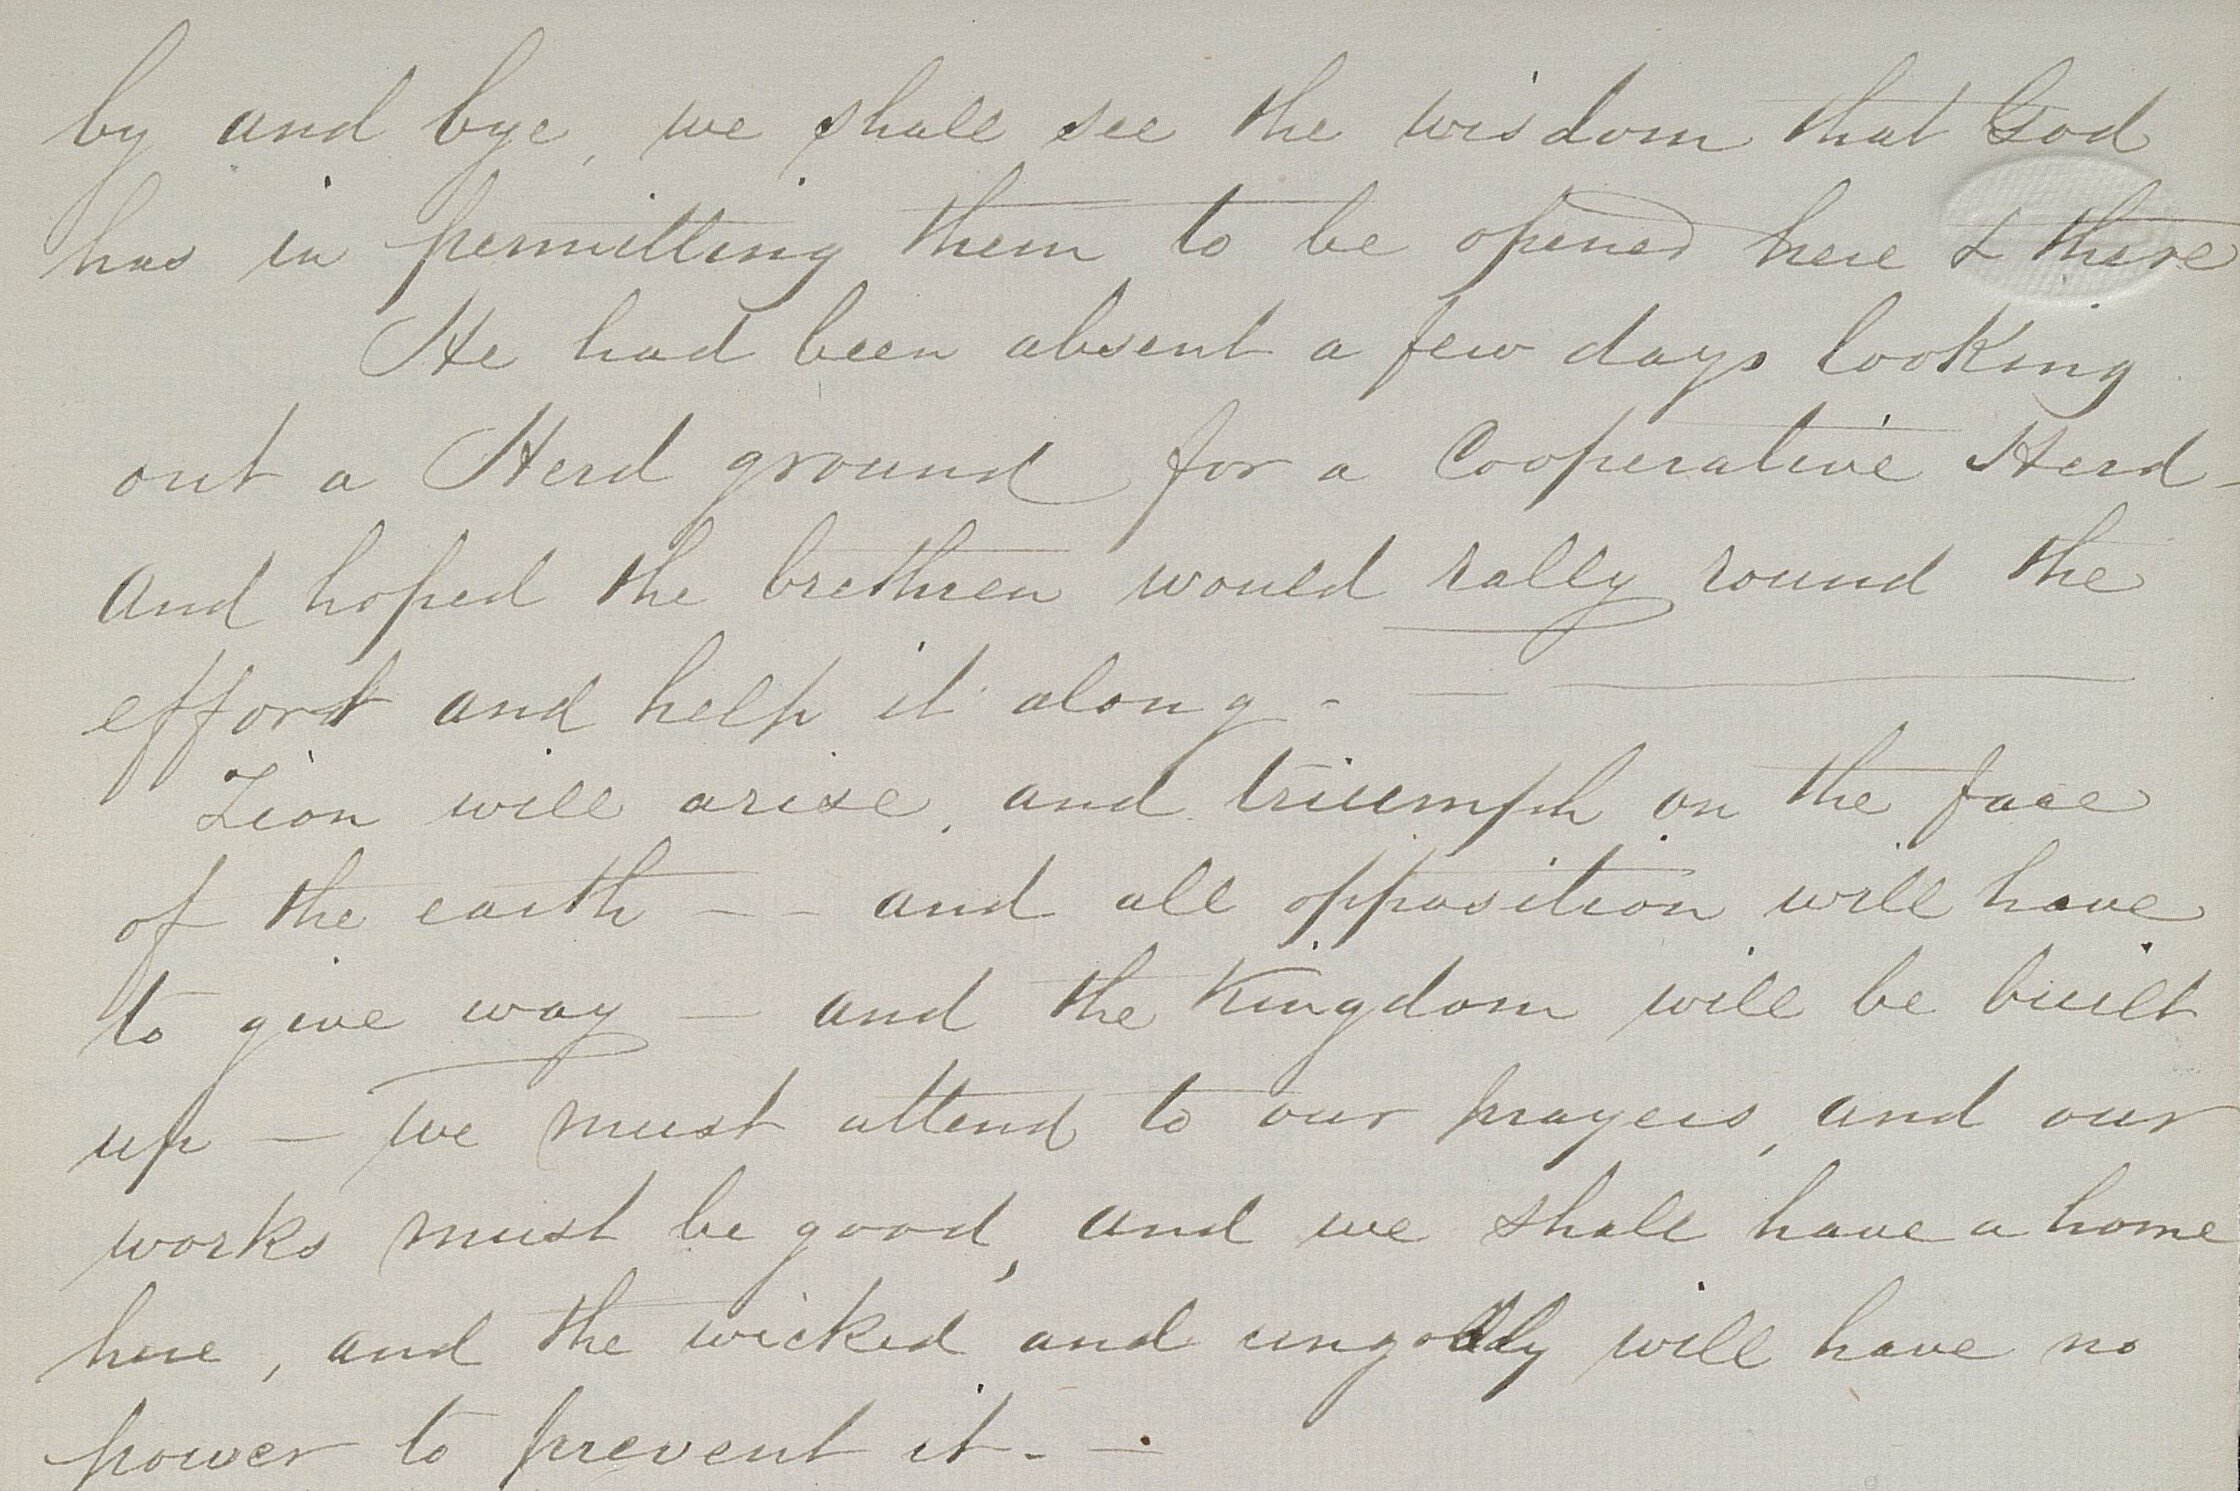 by and bye, we shall see the wisdom that God
has in permitting them to be opened here & there
He had been absent a few days looking
out a Herd ground for a Cooperative Herd -
And hoped the brethren would rally round the
effort and help it along - —
Zion will arise, and triumph on the face
of the earth — - and all opposition will have
to give way — and the Kingdom will be built
up — we must attend to our prayers, and our
works must be good, and we shall have a home
here, and the wicked and ungodly will have no
power to prevent it - —